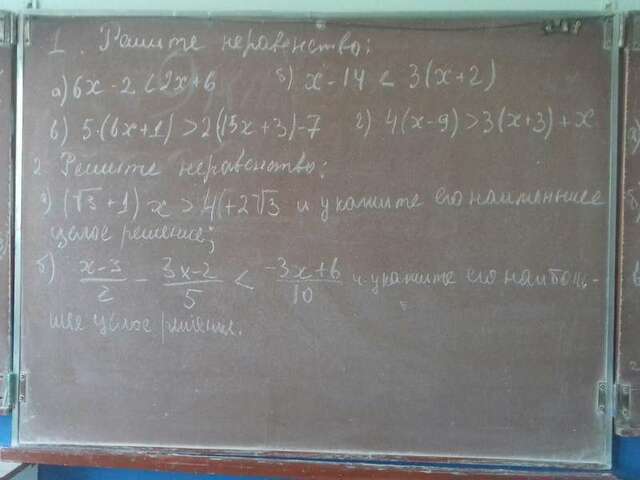 1. Решите неравенство:
а) 6x - 2 < 2x + 6 б) x - 14 < 3(x+2)
в) 5·(6x+1) > 2(15x+3)-7 г) 4(x-9) > 3(x+3)+x
2. Решите неравенство:
а) (√3+1)x > 4+2√3 и укажите его наименьшее
целое решение;
б) x-3/2 - 3x-2/5 < -3x+6/10 и укажите его наиболь-
шее целое решение.